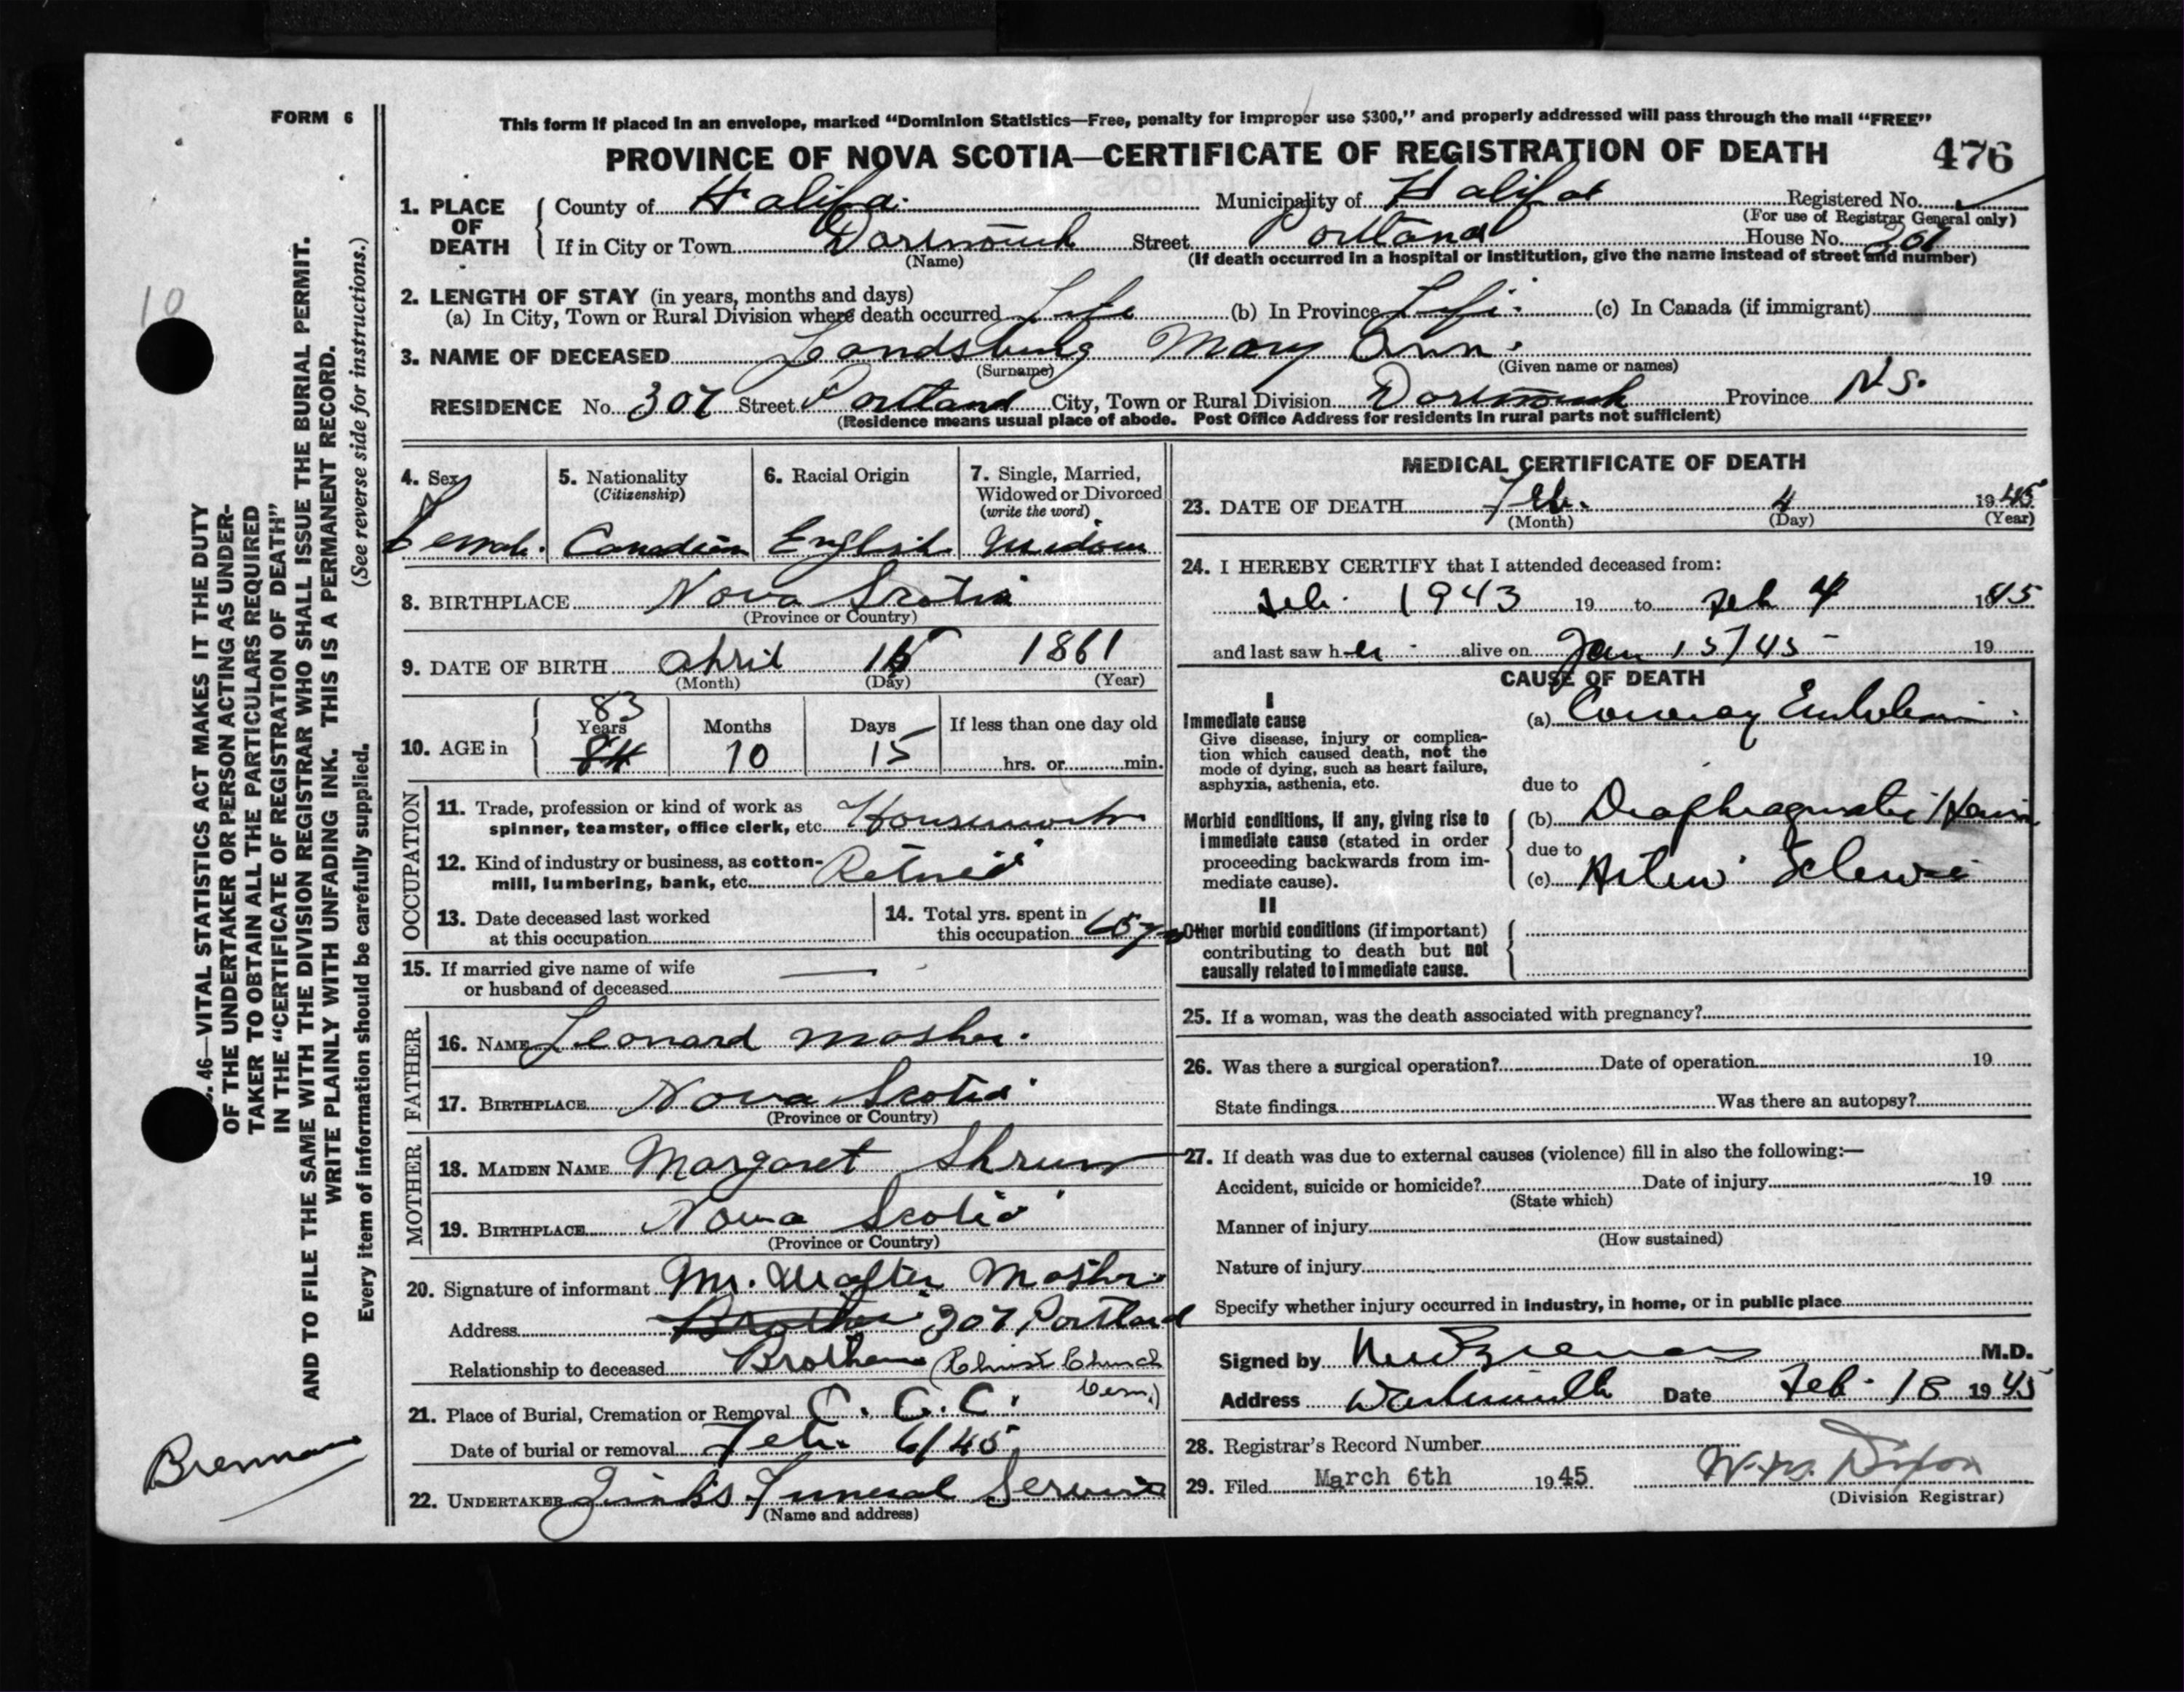 FORM 6
This form if placed in an envelope, marked “Dominion Statistics—Free, penalty for improper use $300,” and properly addressed will pass through the mail “FREE”
PROVINCE OF NOVA SCOTIA—CERTIFICATE OF REGISTRATION OF DEATH 476
1. PLACE OF DEATH
County of Halifa. Municipality of Halifax Registered No.
(For use of Registrar General only)
If in City or Town Dartmouth Street Portland House No.
(Name) (If death occurred in a hospital or institution, give the name instead of street and number)
2. LENGTH OF STAY (in years, months and days)
(a) In City, Town or Rural Division where death occurred Life (b) In Province Life (c) In Canada (if immigrant)
3. NAME OF DECEASED Landsburg Mary Ann.
(Surname) (Given name or names)
RESIDENCE No. 307 Street Portland City, Town or Rural Division Dartmouth Province N.S.
(Residence means usual place of abode. Post Office Address for residents in rural parts not sufficient)
4. Sex Female.
5. Nationality (Citizenship) Canadian
6. Racial Origin English
7. Single, Married, Widowed or Divorced (write the word) Widow
8. BIRTHPLACE Nova Scotia
(Province or Country)
9. DATE OF BIRTH April 1861
(Month) (Day) (Year)
10. AGE in
83
Years Months Days If less than one day old
84 10 15 hrs. or min.
OCCUPATION
11. Trade, profession or kind of work as spinner, teamster, office clerk, etc. Housework
12. Kind of industry or business, as cotton-mill, lumbering, bank, etc. Retired
13. Date deceased last worked at this occupation
14. Total yrs. spent in this occupation 65 yrs
15. If married give name of wife or husband of deceased —
FATHER
16. NAME Leonard Mosher.
17. BIRTHPLACE Nova Scotia
(Province or Country)
MOTHER
18. MAIDEN NAME Margaret Shrum
19. BIRTHPLACE Nova Scotia
(Province or Country)
20. Signature of informant Mr. Walter Mosher
Address Brother 307 Portland
Relationship to deceased Brother (Christ Church Cem.)
21. Place of Burial, Cremation or Removal C. C. C.
Date of burial or removal Feb. 6/45
22. UNDERTAKER Zink's Funeral Service
(Name and address)
MEDICAL CERTIFICATE OF DEATH
23. DATE OF DEATH Feb. 4 1945
(Month) (Day) (Year)
24. I HEREBY CERTIFY that I attended deceased from:
Feb. 1943 19 to Feb 4 1945
and last saw her alive on Jan 15/45 19
CAUSE OF DEATH
I
Immediate cause
Give disease, injury or complication which caused death, not the mode of dying, such as heart failure, asphyxia, asthenia, etc.
(a) Coronary Embolism
due to
Morbid conditions, if any, giving rise to immediate cause (stated in order proceeding backwards from immediate cause).
(b) Diaphragmatic Hernia
due to
(c) Arterio Sclerosis
II
Other morbid conditions (if important) contributing to death but not causally related to immediate cause.
25. If a woman, was the death associated with pregnancy?
26. Was there a surgical operation? Date of operation 19
State findings Was there an autopsy?
27. If death was due to external causes (violence) fill in also the following:—
Accident, suicide or homicide? Date of injury 19
(State which)
Manner of injury
(How sustained)
Nature of injury
Specify whether injury occurred in industry, in home, or in public place
Signed by Brennan M.D.
Address Dartmouth Date Feb. 18 1945
28. Registrar's Record Number
29. Filed March 6th 1945 Dixon
(Division Registrar)
10
. 46—VITAL STATISTICS ACT MAKES IT THE DUTY
OF THE UNDERTAKER OR PERSON ACTING AS UNDER-
TAKER TO OBTAIN ALL THE PARTICULARS REQUIRED
IN THE “CERTIFICATE OF REGISTRATION OF DEATH”
AND TO FILE THE SAME WITH THE DIVISION REGISTRAR WHO SHALL ISSUE THE BURIAL PERMIT.
WRITE PLAINLY WITH UNFADING INK. THIS IS A PERMANENT RECORD.
Every item of information should be carefully supplied. (See reverse side for instructions.)
Brennan